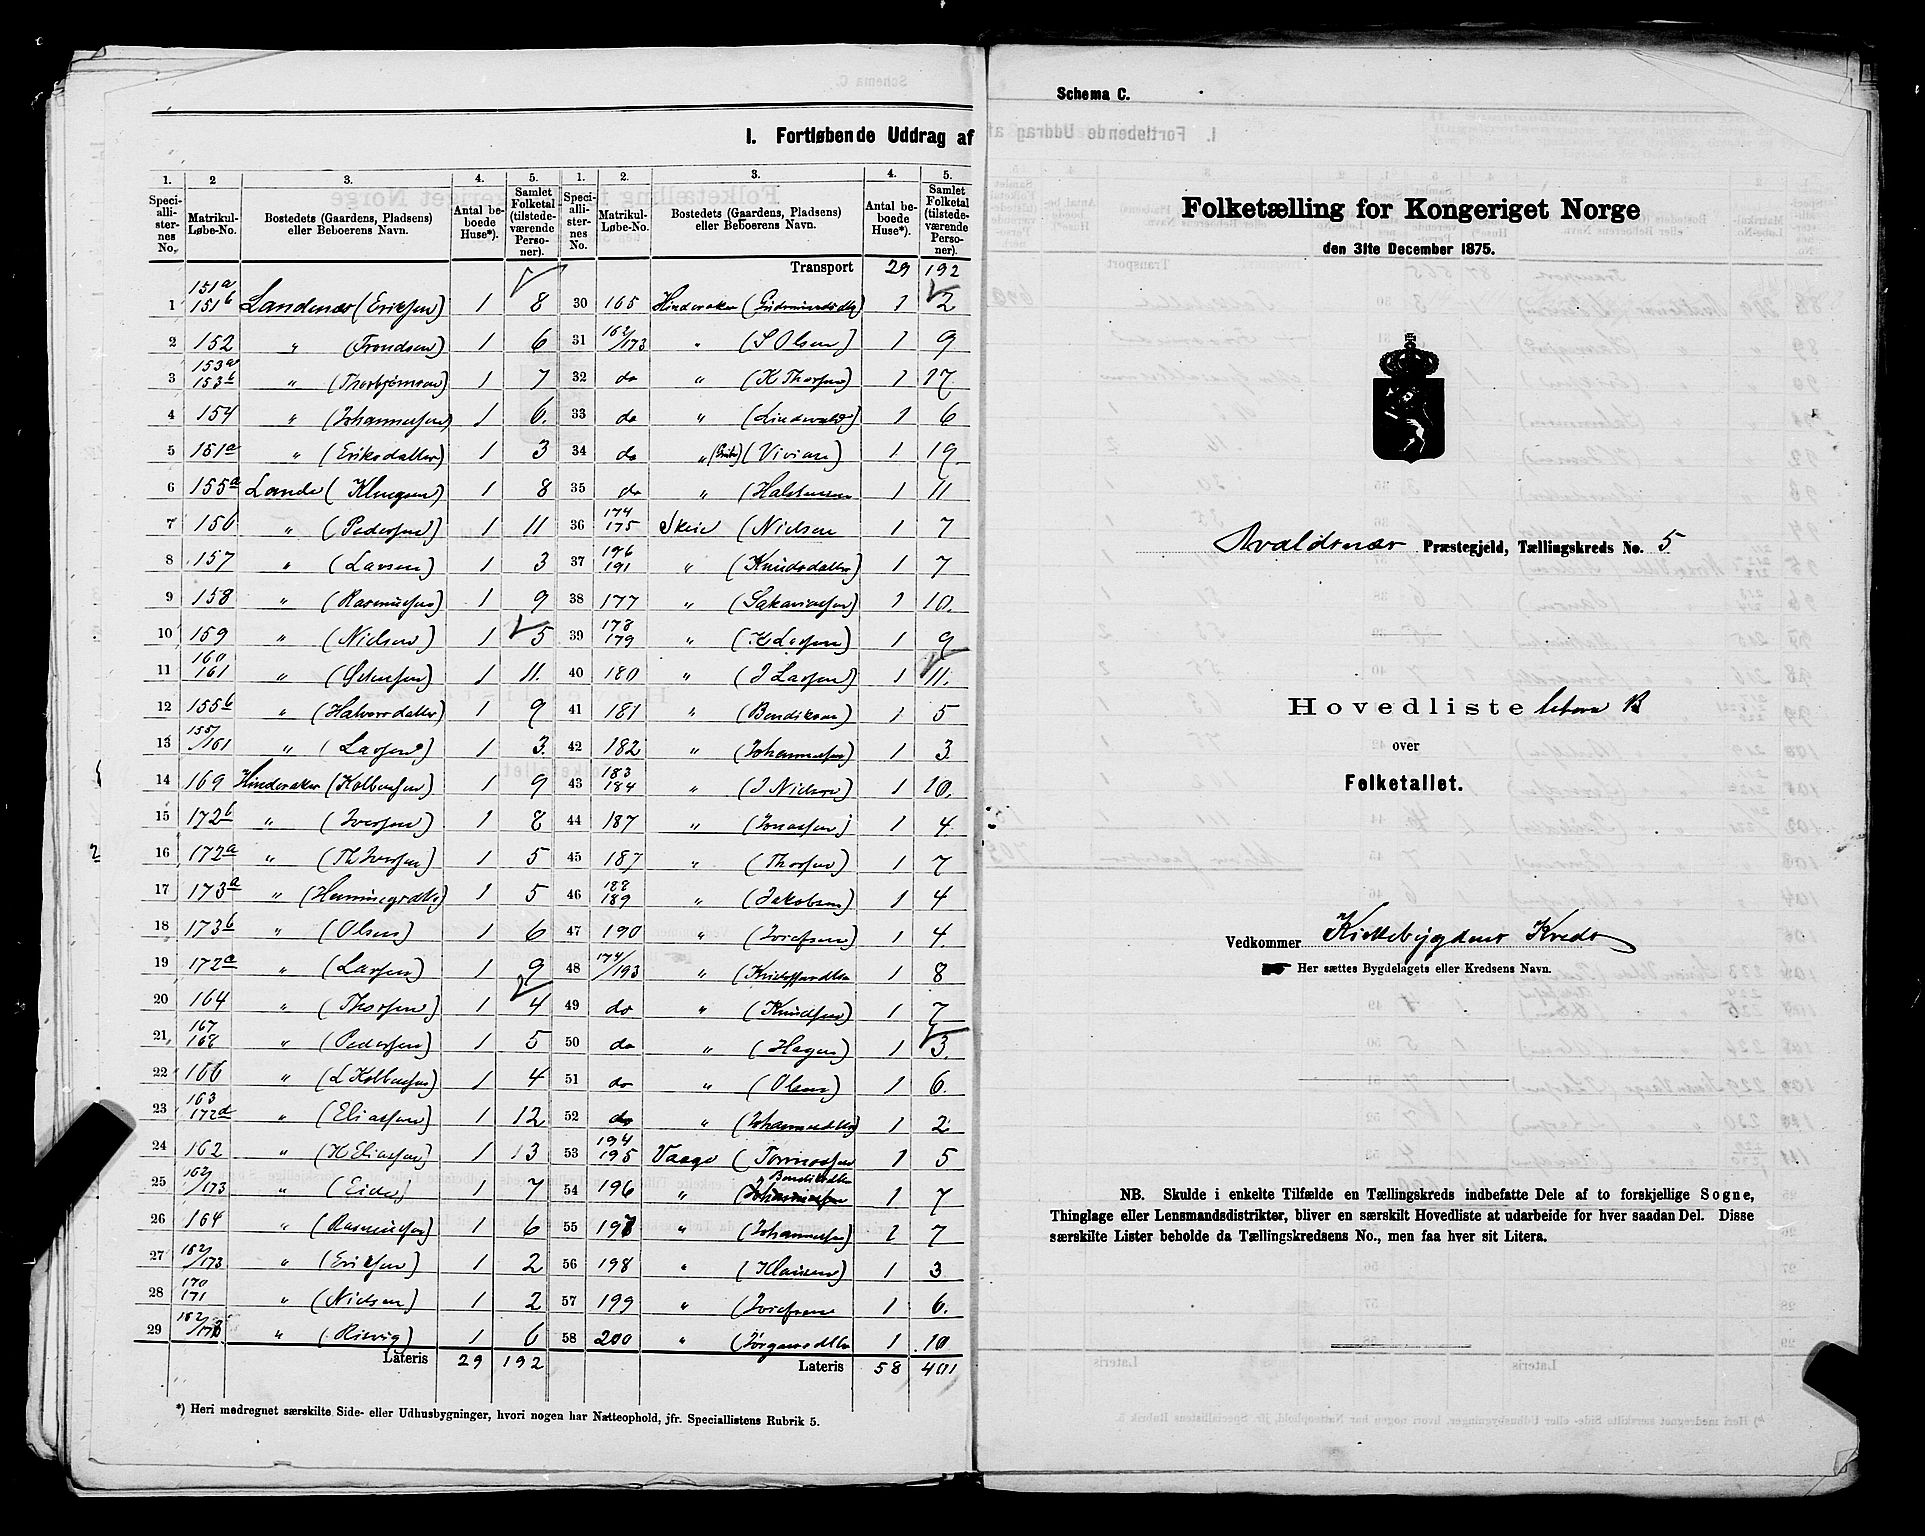 I. Fortløbende Uddrag af
1. 2 3. 4. 5. 1. 2. 3. 4. 5.
Speciallisternes No. Matrikul-Løbe-No. Bostedets (Gaardens, Pladsens) eller Beboerens Navn. Antal beboede Huse*). Samlet Folketal (tilstedeværende Personer). Speciallisternes No. Matrikul-Løbe-No. Bostedets (Gaardens, Pladsens) eller Beboerens Navn. Antal beboede Huse*). Samlet Folketal (tilstedeværende Personer).
Transport 29 192
1 151a 151b Landenær (Eriksen) 1 8 30 165 Hinderaker 1 2
2 152 " (Trondsen) 1 6 31 162/173 " (S Olsen) 1 9
3 153a 153b " (Thorbjørnsen) 1 7 32 do " (K Thorsen) 1 17
4 154 " (Johannessen) 1 6. 33 do " 1 6
5 151a " (Eriksdatter) 1 3 34 do " (Viviare) 1 19
6 155a Lande (Klungsen) 1 8 35 do " (Halstensen 1 11
7 156 " (Pedersen) 1 11 36 174 175 Skeie (Nielsen 1 7
8 157 " (Larsen) 1 3 37 196 191 " (Knudsdatter) 1 7
9 158 " (Rasmussen) 1 9 38 177 " (Sakariassen) 1 10.
10 159 " (Nielsen) 1 5 39 178 179 " (K Larsen) 1 9
11 160 161 " 1 11. 40 180 " (J Larsen) 1 11.
12 155b " (Halvorsdatter) 1 9 41 181 " (Bendiksen) 1 5
13 155/161 " (Larsen) 1 3. 42 182 " (Johannessen) 1 3.
14 169 Hinderaker (Kolbensen) 1 9 43 183 184 " (J Nielsen) 1 10.
15 172b " (Iversen) 1 8 44 187 " (Jonassen) 1 4.
16 172a " (Th Iversen) 1 5 45 187 " (Thorsen) 1 7
17 173a " 1 5 46 188 189 " (Jakobsen) 1 4
18 173b " (Olsen) 1 6 47 190 " 1 4.
19 172a " (Larsen) 1 9 48 174/193 " 1 8
20 164 " (Thorsen) 1 4 49 do " (Knudsen) 1 7
21, 167 168 " (Pedersen) 1 5 50 do " (Hagen) 1 3.
22 166 " (L Kolbensen) 1 4 51 do " (Olsen) 1 6.
23 163 172d " (Eliassen) 1 12 52 do " 1 2
24 162 " (K Eliassen) 1 13 53 194 195 Vaage (Tormodsen 1 5
25 162/173 " (Eide) 1 7 54 196 " 1 7
26 164 " (Rasmussen) 1 6 55 197 " (Johannessen) 1 7
27 162/173 " (Eriksen) 1 2 56 198 " (Klausen) 1 3
28 170 171 " (Nielsen) 1 2 57 199 " 1 6.
29 " 1 6 58 200 " 1 10
Lateris 29 192 Lateris 58 401
*) Heri medregnet særskilte Side- eller Udhusbygninger, hvori nogen har Natteophold, jfr. Speciallistens Rubrik 5.
Schema C.
Folketælling for Kongeriget Norge
den 31te December 1875.
Avaldsnær Præstegjeld, Tællingskreds No. 5
Hovedliste litera B
over
Folketallet.
Vedkommer Kirkebygdens Kreds
Her sættes Bygdelagets eller Kredsens Navn.
NB. Skulde i enkelte Tilfælde en Tællingskreds indbefatte Dele af to forskjellige Sogne,
Thinglage eller Lensmandsdistrikter, bliver en særskilt Hovedliste at udarbeide for hver saadan Del. Disse
særskilte Lister beholde da Tællingskredsens No., men faa hver sit Litera.